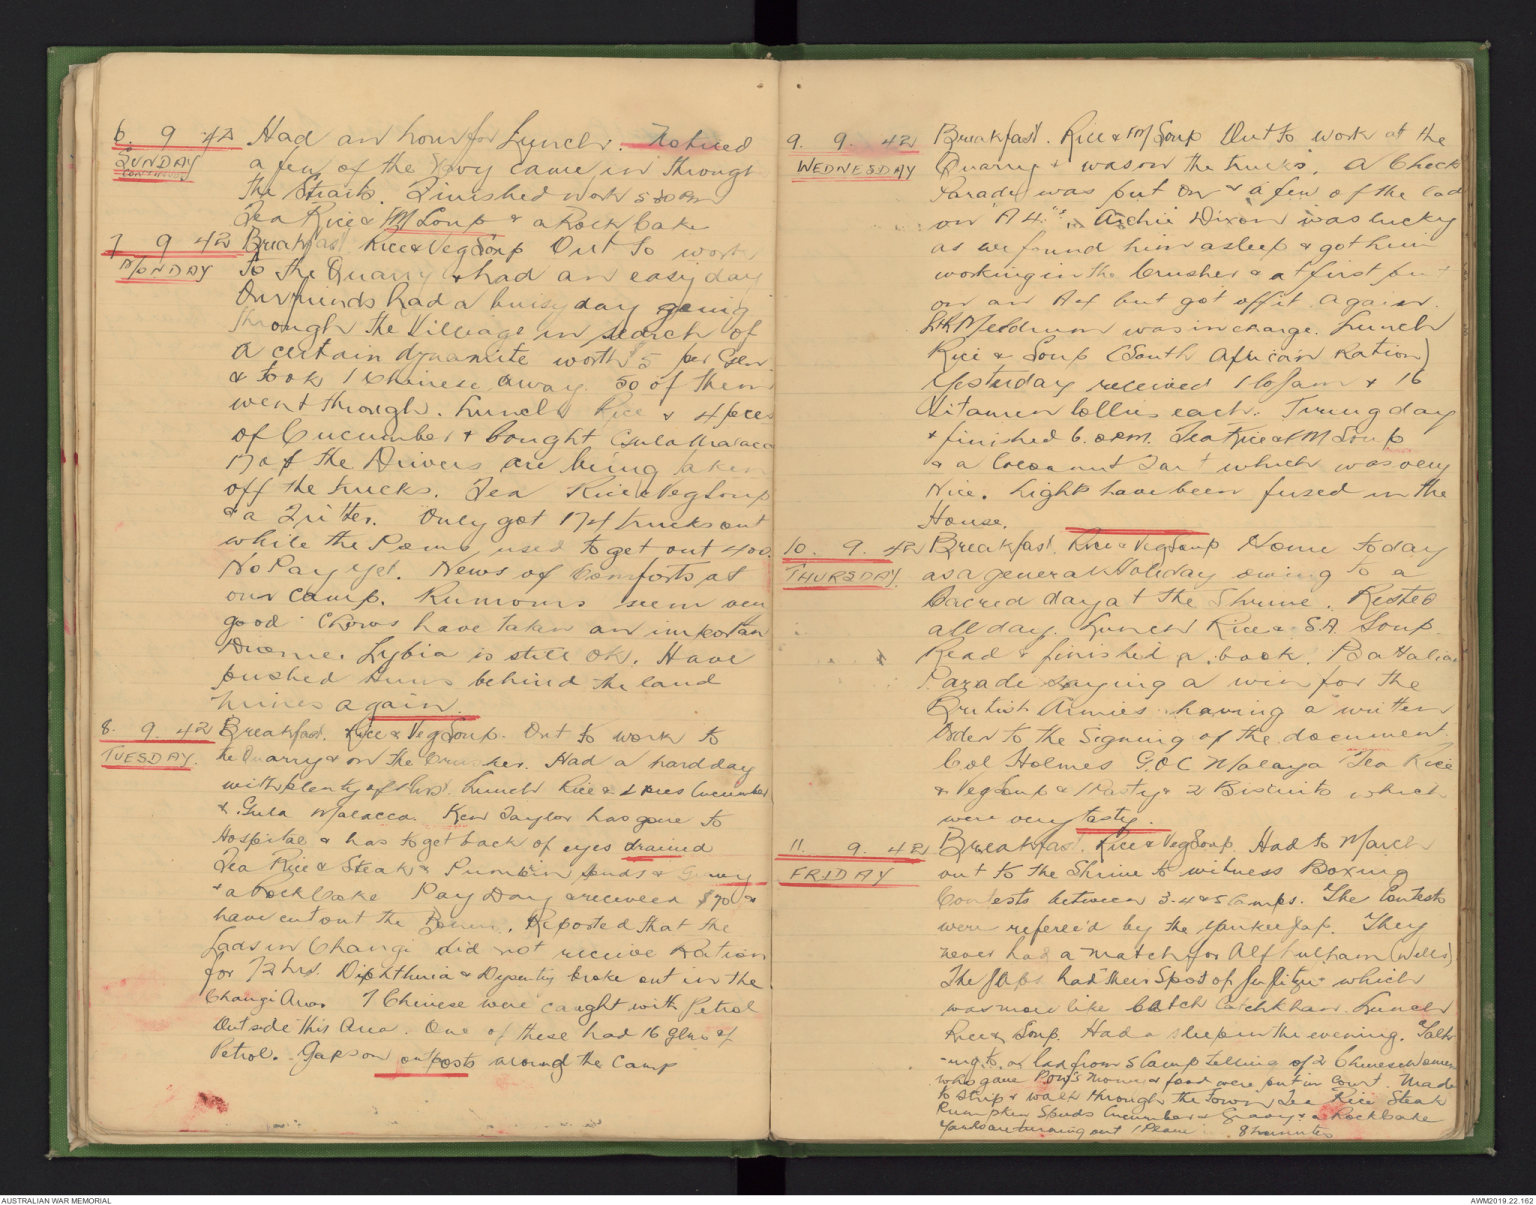 6. 9 42 Had an hour for Lunch. Noticed
SUNDAY a few of the Navy came in through
CONTINUED the Track. Finished work 5 30 PM
Tea Rice & FM Soup & a Rock Cake
7 9 42 Breakfast Rice & Veg Soup Out to work
MONDAY to the Quarry & had an easy day
Our minds had a busy day going
through the Village in search of
a certain dynamite worth $5 per
& took 1 Chinese away. 50 of them
went through. Lunch Rice & 4 pces
of Cucumber & bought Gula Malacca
17 of the Drivers are being taken
off the trucks. Tea Rice & Veg Soup
& a Fritter. Only got 174 trucks out
while the Poms used to get out 400.
No Pay yet. News of Comforts at
our Camp. Rumours seem very
good. Chows have taken an important
Drome. Lybia is still OK. Have
pushed Huns behind the land
mines again.
8. 9. 42 Breakfast. Rice & Veg Soup. Out to work to
TUESDAY. the Quarry & on the Crusher. Had a hard day
with plenty of Lunch Rice & 2 pces Cucumber
& Gula Malacca. Ken Taylor has gone to
Hospital & has to get back of eyes drained
Tea Rice & Steak & Pumkin Spuds & Gravy
& a Rock Cake Pay Day & received $ &
have cut out the Reported that the
Lads in Changi did not receive Ration
for 72 hrs. Diphtheria & Dysentry broke out in the
Changi Area. 7 Chinese were caught with Petrol
Outside this Area. One of these had 16 glns of
Petrol. Japs on outposts around the Camp
9. 9. 42 Breakfast. Rice & FM Soup Out to work at the
WEDNESDAY Quarry & was on the trucks. A Check
Parade was put on & a few of the lads
on "A 4." Archie Dixon was lucky
as we found him asleep & got him
working in the Crusher & at first put
on an A4 but got off it again.
Lt Meldrum was in charge. Lunch
Rice & Soup (South African Ration)
Yesterday received 1 lb Jam & 16
Vitamin lollies each. Tiring day
& finished 6. 0 PM. Tea Rice & FM Soup
& a Cocoanut Tart which was very
Nice. Lights have been fused in the
House.
10. 9. 42 Breakfast. Rice & Veg Soup Home today
THURSDAY. as a general Holiday owing to a
Sacred day at the Shrine. Rested
all day. Lunch Rice & S.A. Soup.
Read & finished a book. Battalion
Parade saying a win for the
British Armies having a written
Order to the Signing of the document
Col Holmes G.O.C Malaya Tea Rice
& Veg Soup & 1 Pasty & 2 Biscuits which
were very tasty.
11. 9. 42 Breakfast. Rice & Veg Soup. Had to March
FRIDAY out to the Shrine to witness Boxing
Contests between 3-4 & 5 Camps. The Contests
were referee'd by the Yankee Jap. They
never had a match for Alf Fulham (Wells)
The Japs had their Spost of Ju Jitzu which
was more like Catch Catchkhan. Lunch
Rice & Soup. Had a sleep in the evening. Talk-
-ing to a lad from 5 Camp telling of 2 Chinese Women
who gave Pow's money & food were put in Court. Made
to Strip & walk through the town. Tea Rice Steak
Pumpkin Spuds Cucumber & Gravy & a Rock Cake
Yanks are turning out 1 Plane 8 minutes
AUSTRALIAN WAR MEMORIAL
AWM2019.22.162